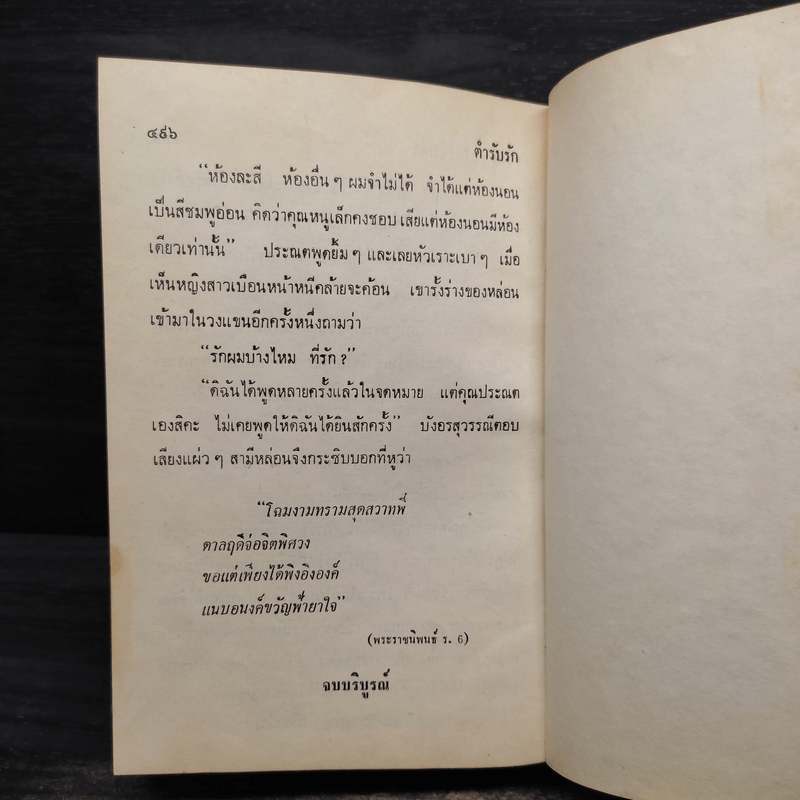 ๔๙๖
ตำรับรัก
“ห้องละสี ห้องอื่น ๆ ผมจำไม่ได้ จำได้แต่ห้องนอน
เป็นสีชมพูอ่อน คิดว่าคุณหนูเล็กคงชอบ เสียแต่ห้องนอนมีห้อง
เดียวเท่านั้น” ประณตพูดยิ้ม ๆ และเลยหัวเราะเบา ๆ เมื่อ
เห็นหญิงสาวเบือนหน้าหนีคล้ายจะค้อน เขารั้งร่างของหล่อน
เข้ามาในวงแขนอีกครั้งหนึ่งถามว่า
“รักผมบ้างไหม ที่รัก ?”
“ดิฉันได้พูดหลายครั้งแล้วในจดหมาย แต่คุณประณต
เองสิคะ ไม่เคยพูดให้ดิฉันได้ยินสักครั้ง” บังอรสุวรรณีตอบ
เสียงแผ่ว ๆ สามีหล่อนจึงกระซิบบอกที่หูว่า
“โฉมงามทรามสุดสวาทพี่
ดาลฤดีจ่อจิตพิศวง
ขอแต่เพียงได้พิงอิงองค์
แนบอนงค์ขวัญฟ้ายาใจ”
(พระราชนิพนธ์ ร. 6)
จบบริบูรณ์